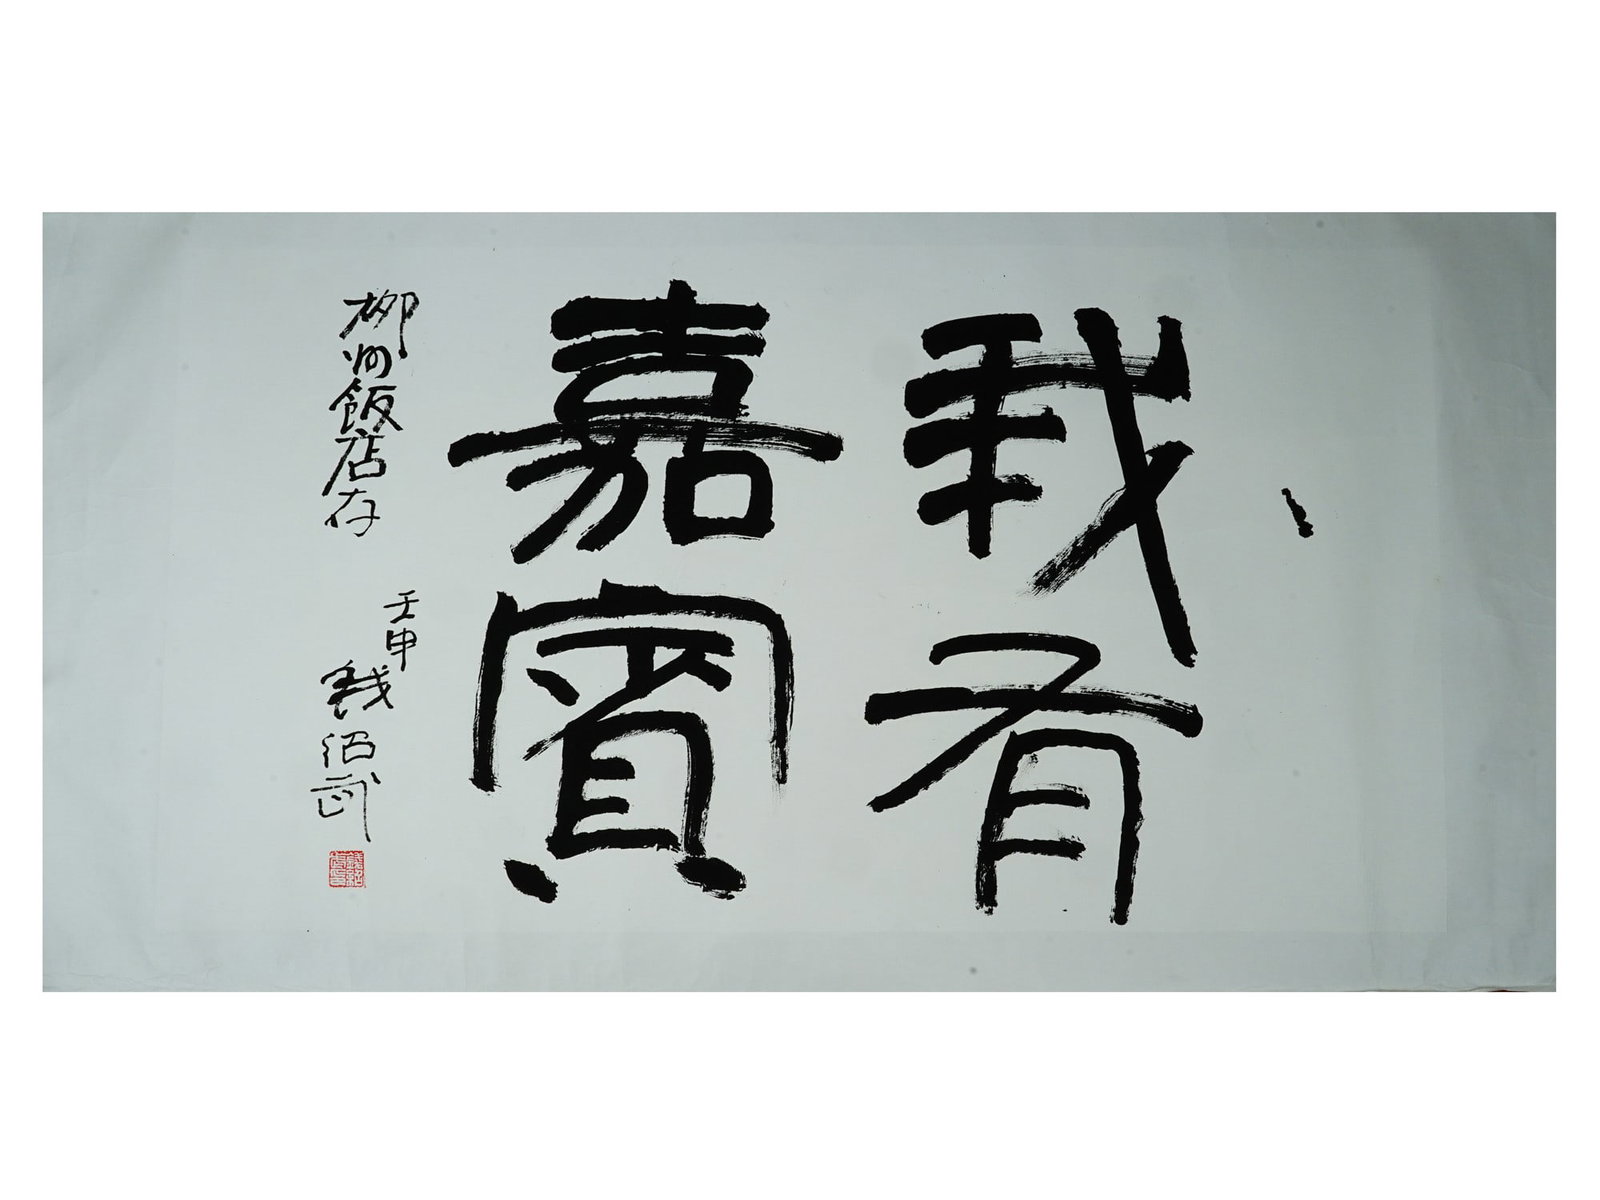 我有
嘉賓
柳州飯店存
壬申
錢绍武